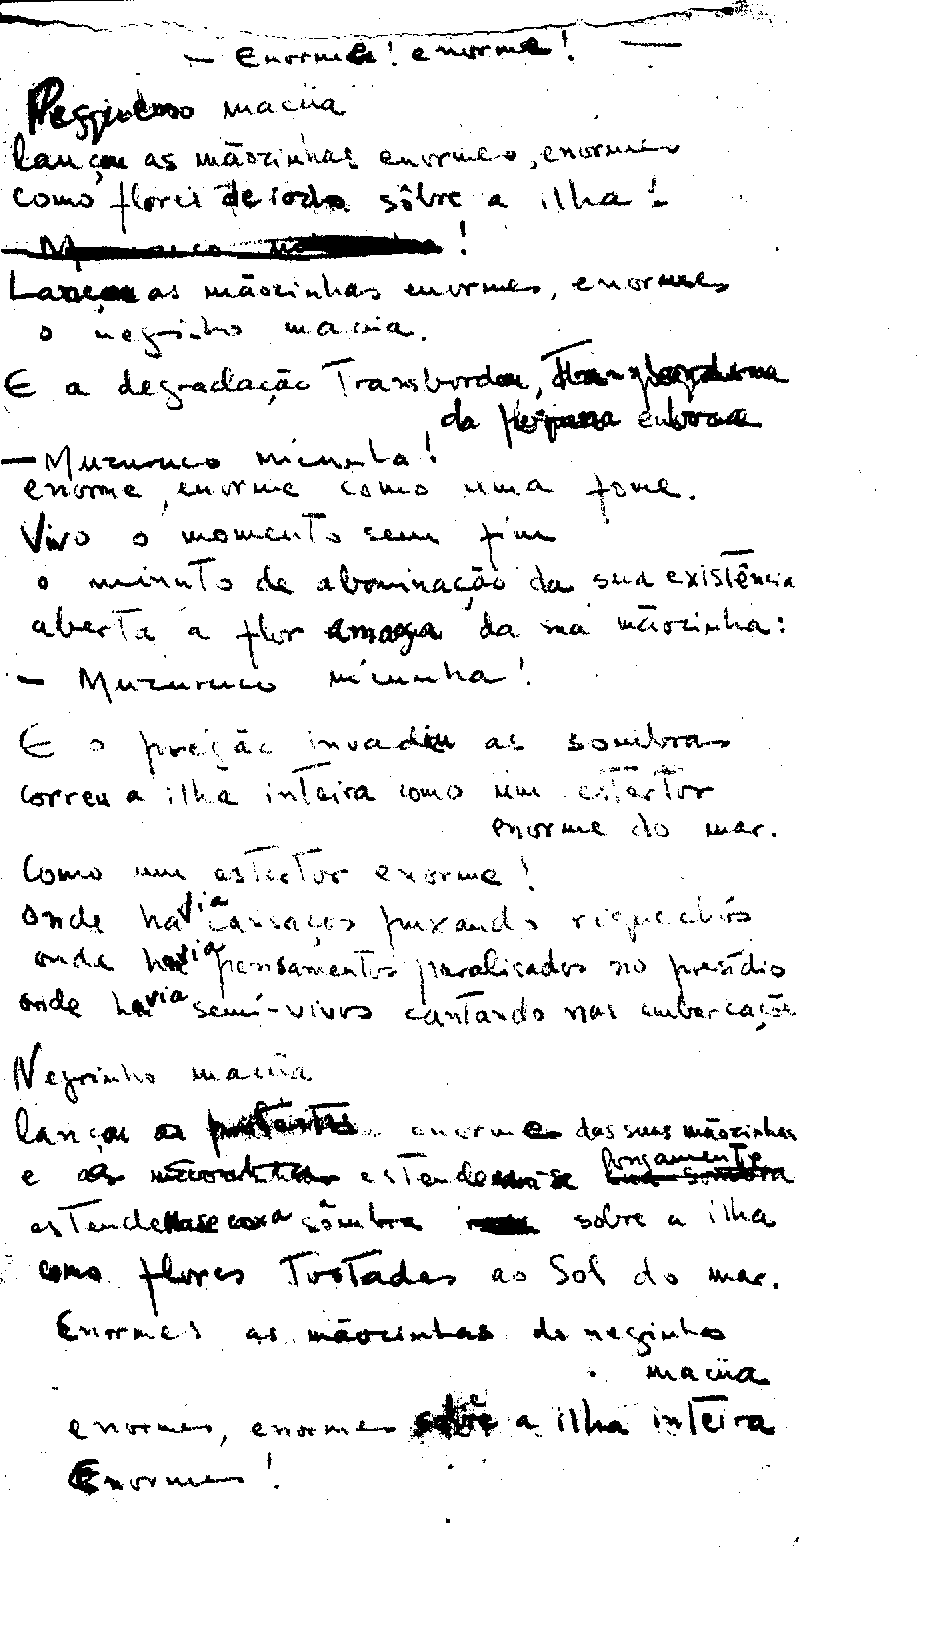 — Enorme! enorme! —
macúa
lançou as mãozinhas enormes, enormes
como flores de iodo sôbre a ilha!
!
Lançou as mãozinhas enormes, enormes
o negrinho macúa.
E a degradação Transbordou,
da
— Muzuruco nicunha!
enorme, enorme como uma fome.
Vivo o momento sem fim
o minuto de abominação da sua existência
aberta à flor amarga da sua mãozinha:
— Muzuruco nicunha!
E o pregão invadiu as sombras
correu a ilha inteira como um estertor
enorme do mar.
Como um estertor enorme!
onde havia cansaços puxando riquechós
onde havia pensamentos paralisados no presídio
onde havia semi-vivos cantando nas embarcações
Negrinho macúa
lançou enorme das suas mãozinhas
e estendem-se longamente
sombra sobre a ilha
como flores Tostadas ao Sol do mar.
Enormes as mãozinhas do negrinho
macúa
enormes, enormes sobre a ilha inteira
Enormes!